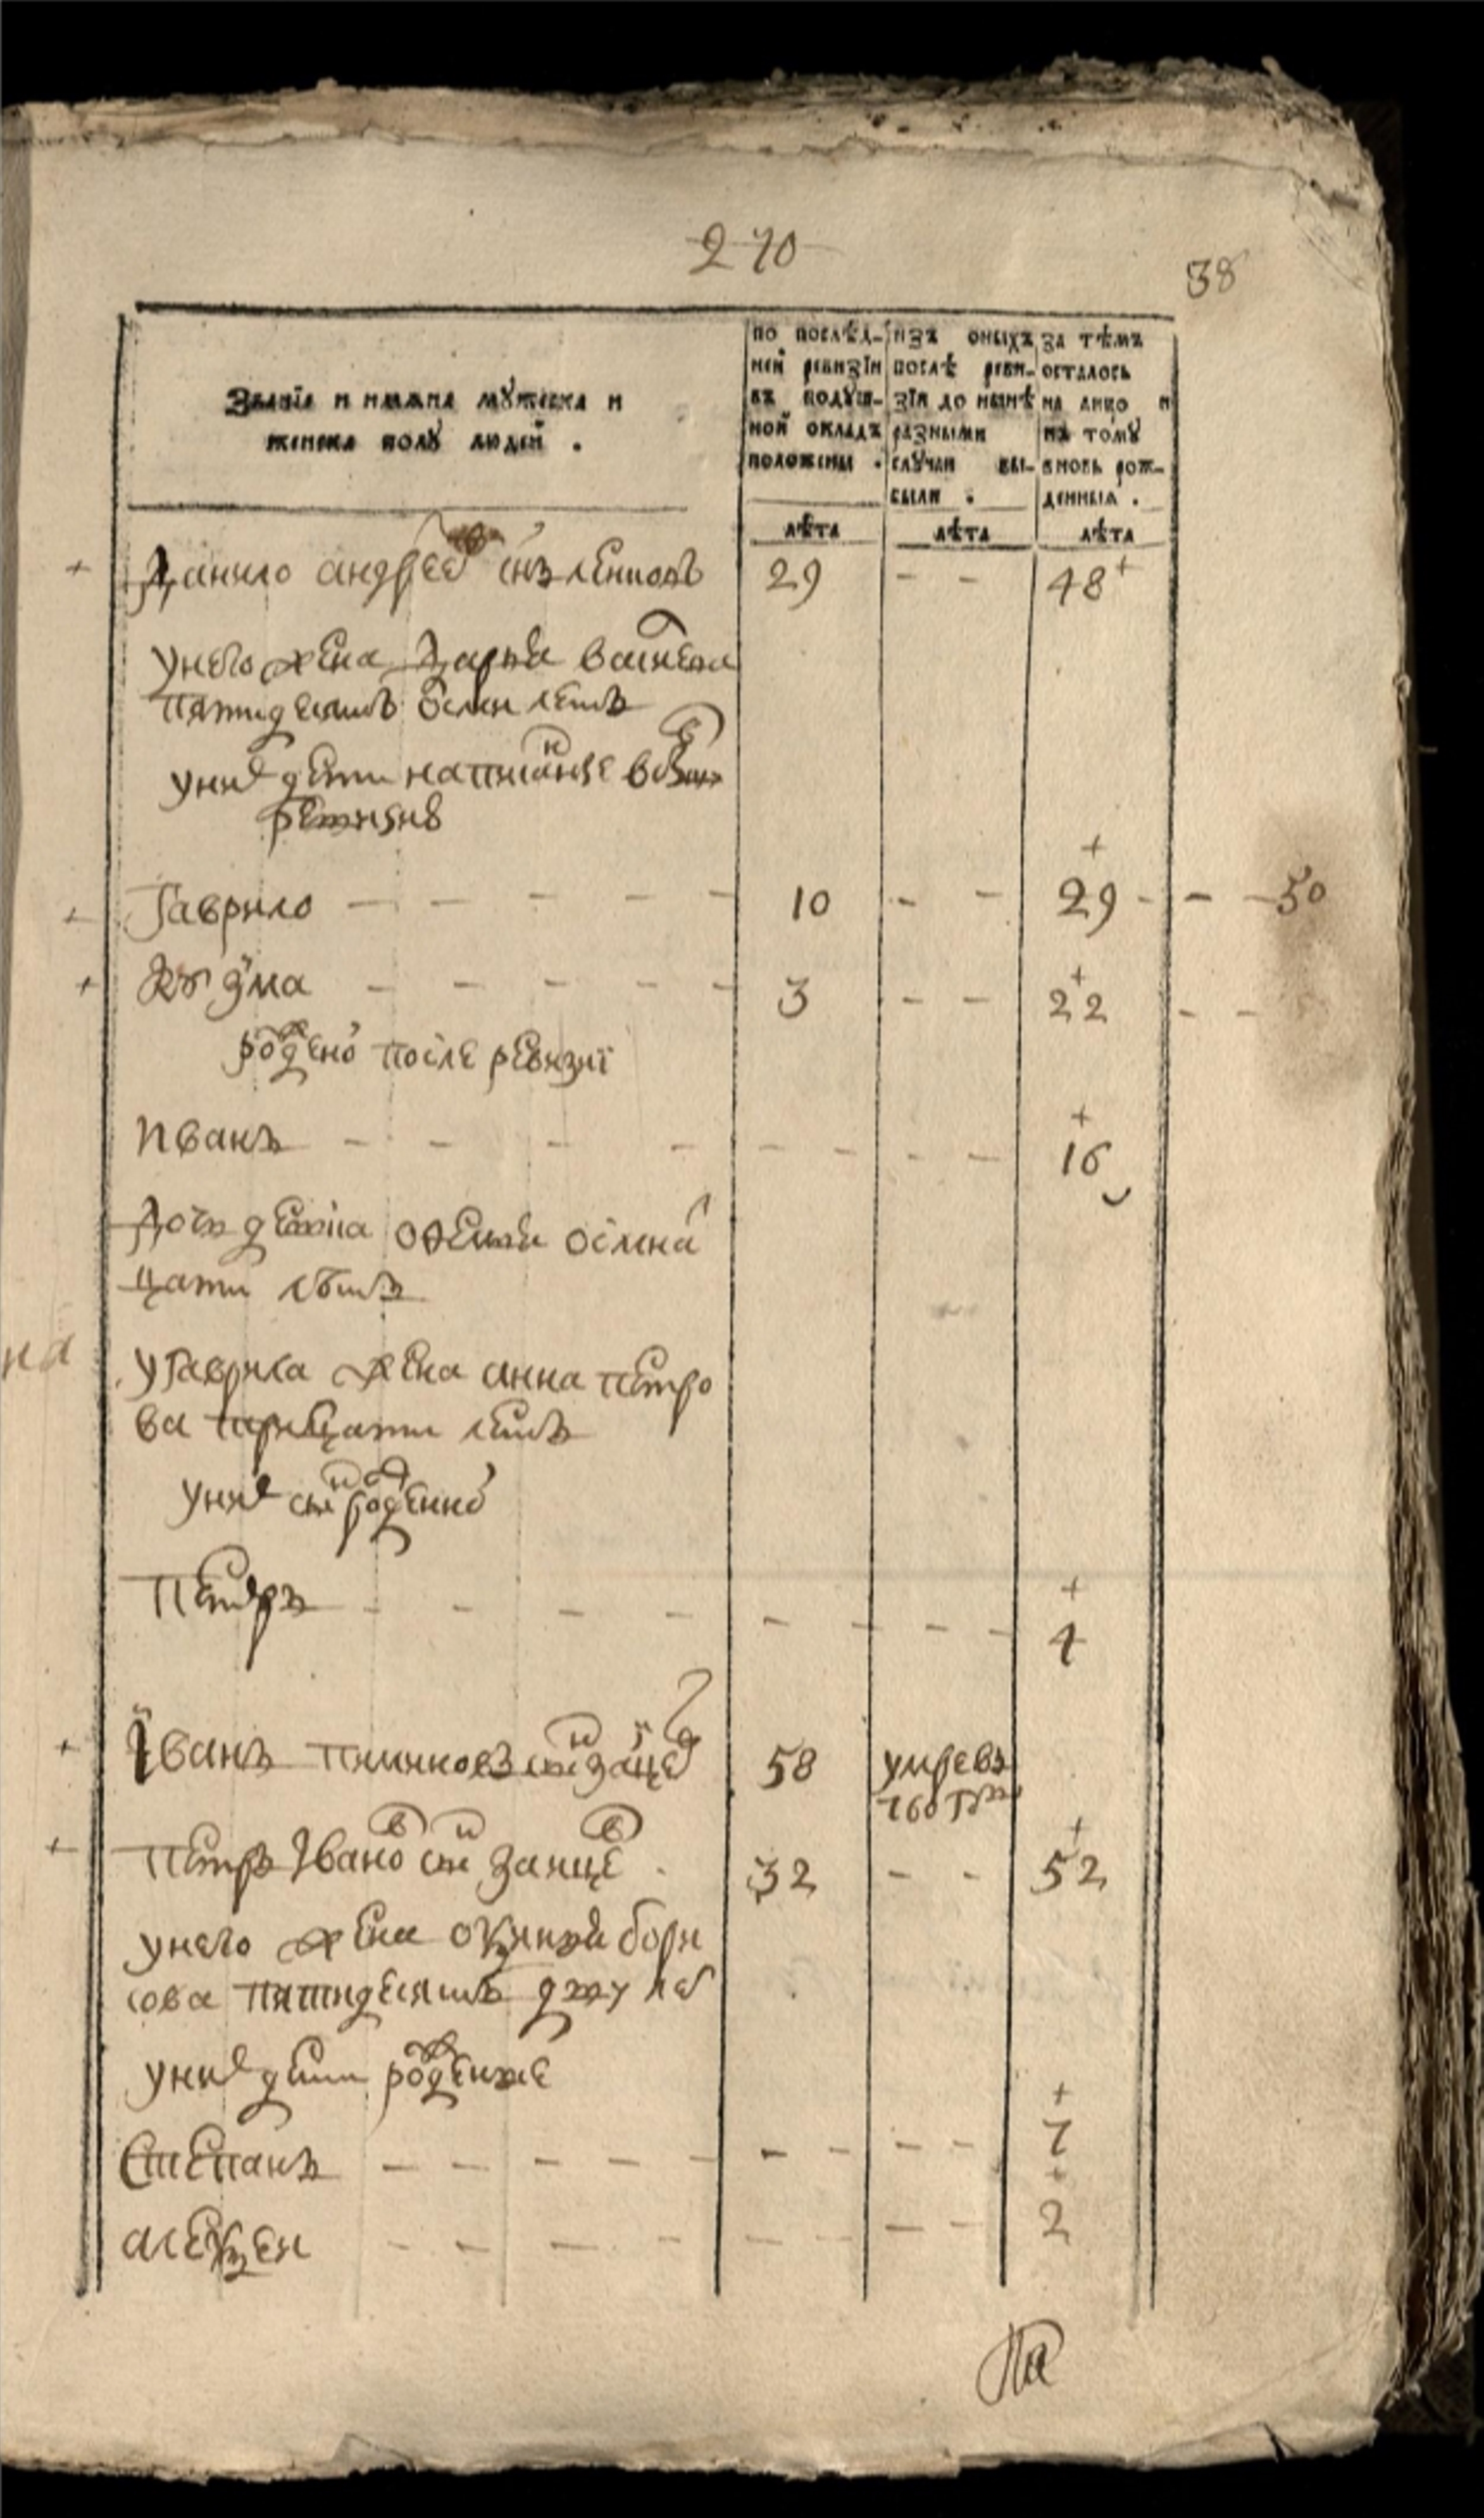 270
38
Званїе и имяна мужеска и
женска полу людей .
по послѣд-
ней ревизїи
въ подуш-
ной окладъ
положены .
изъ оныхъ
послѣ реви-
зїи до нынѣ
разными
случаи вы-
были .
За тѣмъ
осталось
на лицо и
къ тому
вновь рож-
денныя .
лѣта лѣта лѣта
Данило андрев снъ 29 - - 48
унего жена дарья василева
пятидесятъ осми летъ
уних дети написаные
ревизию
Гаврило - - - - - 10 - - 29 - - - 50
Кузма - - - - - 3 - - 22 - -
рожденой после ревизиї
иванъ - - - - - - - - 16
дочь девка офимья осмна
цати летъ
на
угаврила жена анна петро
ва трицати летъ
уних сын рожденной
Петръ - - - - - - - - 4
Їванъ сын зайцев 58 умре въ
760 году
Петръ Ївано в сын заицев 32 - - 52
унего жена оксинья бори
сова пятидесятъ дву лет
уних дети рожденые
Степанъ - - - - - - - - - 7
алексеи - - - - - - - - 2
На